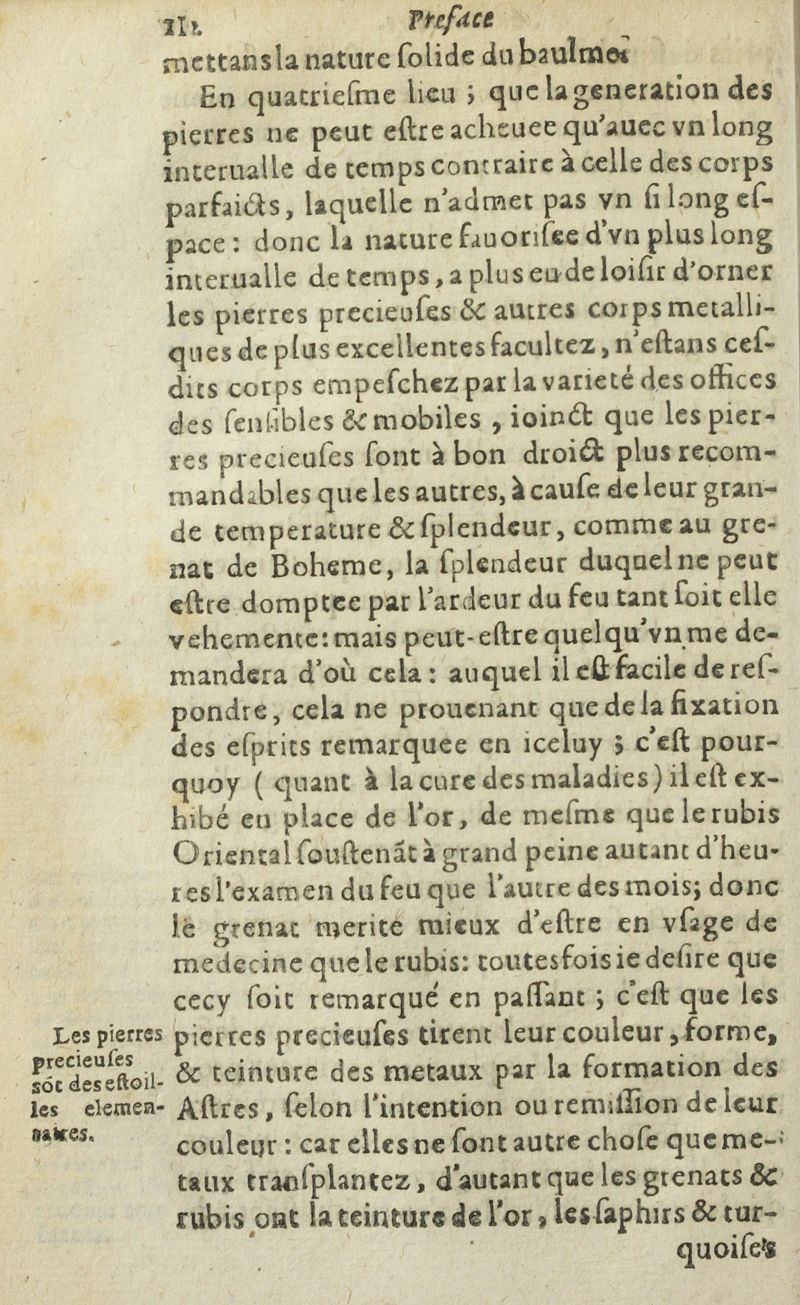 Preface
mettans la nature ſolide du baulme.
En quatrieſme lieu ; que la generation des
pierres ne peut eſtre acheuee qu'auec vn long
interualle de temps contraire à celle des corps
parfaicts, laquelle n'admet pas vn ſi long eſ-
pace : donc la nature fauoriſee d'vn plus long
interualle de temps, a plus eu de loiſir d'orner
les pierres precieuſes & autres corps metalli-
ques de plus excellentes facultez, n'eſtans ceſ-
dits corps empeſchez par la varieté des offices
des ſenſibles & mobiles , ioinct que les pier-
res precieuſes ſont à bon droict plus recom-
mandables que les autres, à cauſe de leur gran-
de temperature & ſplendeur, comme au gre-
nat de Boheme, la ſplendeur duquel ne peut
eſtre domptee par l'ardeur du feu tant ſoit elle
vehemente: mais peut-eſtre quelqu'vn me de-
mandera d'où cela : auquel il eſt facile de reſ-
pondre, cela ne prouenant que de la fixation
des eſprits remarquee en iceluy ; c'eſt pour-
quoy ( quant à la cure des maladies ) il eſt ex-
hibé en place de l'or, de meſme que le rubis
Oriental ſouſtenãt à grand peine autant d'heu-
res l'examen du feu que l'autre des mois; donc
le grenat merite mieux d'eſtre en vſage de
medecine que le rubis: toutesfois ie deſire que
cecy ſoit remarqué en paſſant ; c'eſt que les
Les pierres
precieuſes
sõt des eſtoil-
les elemen-
naires.
pierres precieuſes tirent leur couleur, forme,
& teinture des metaux par la formation des
Aſtres, ſelon l'intention ou remiſſion de leur
couleur : car elles ne ſont autre choſe que me-
taux tranſplantez, d'autant que les grenats &
rubis ont la teinture de l'or, les ſaphirs & tur-
quoiſes